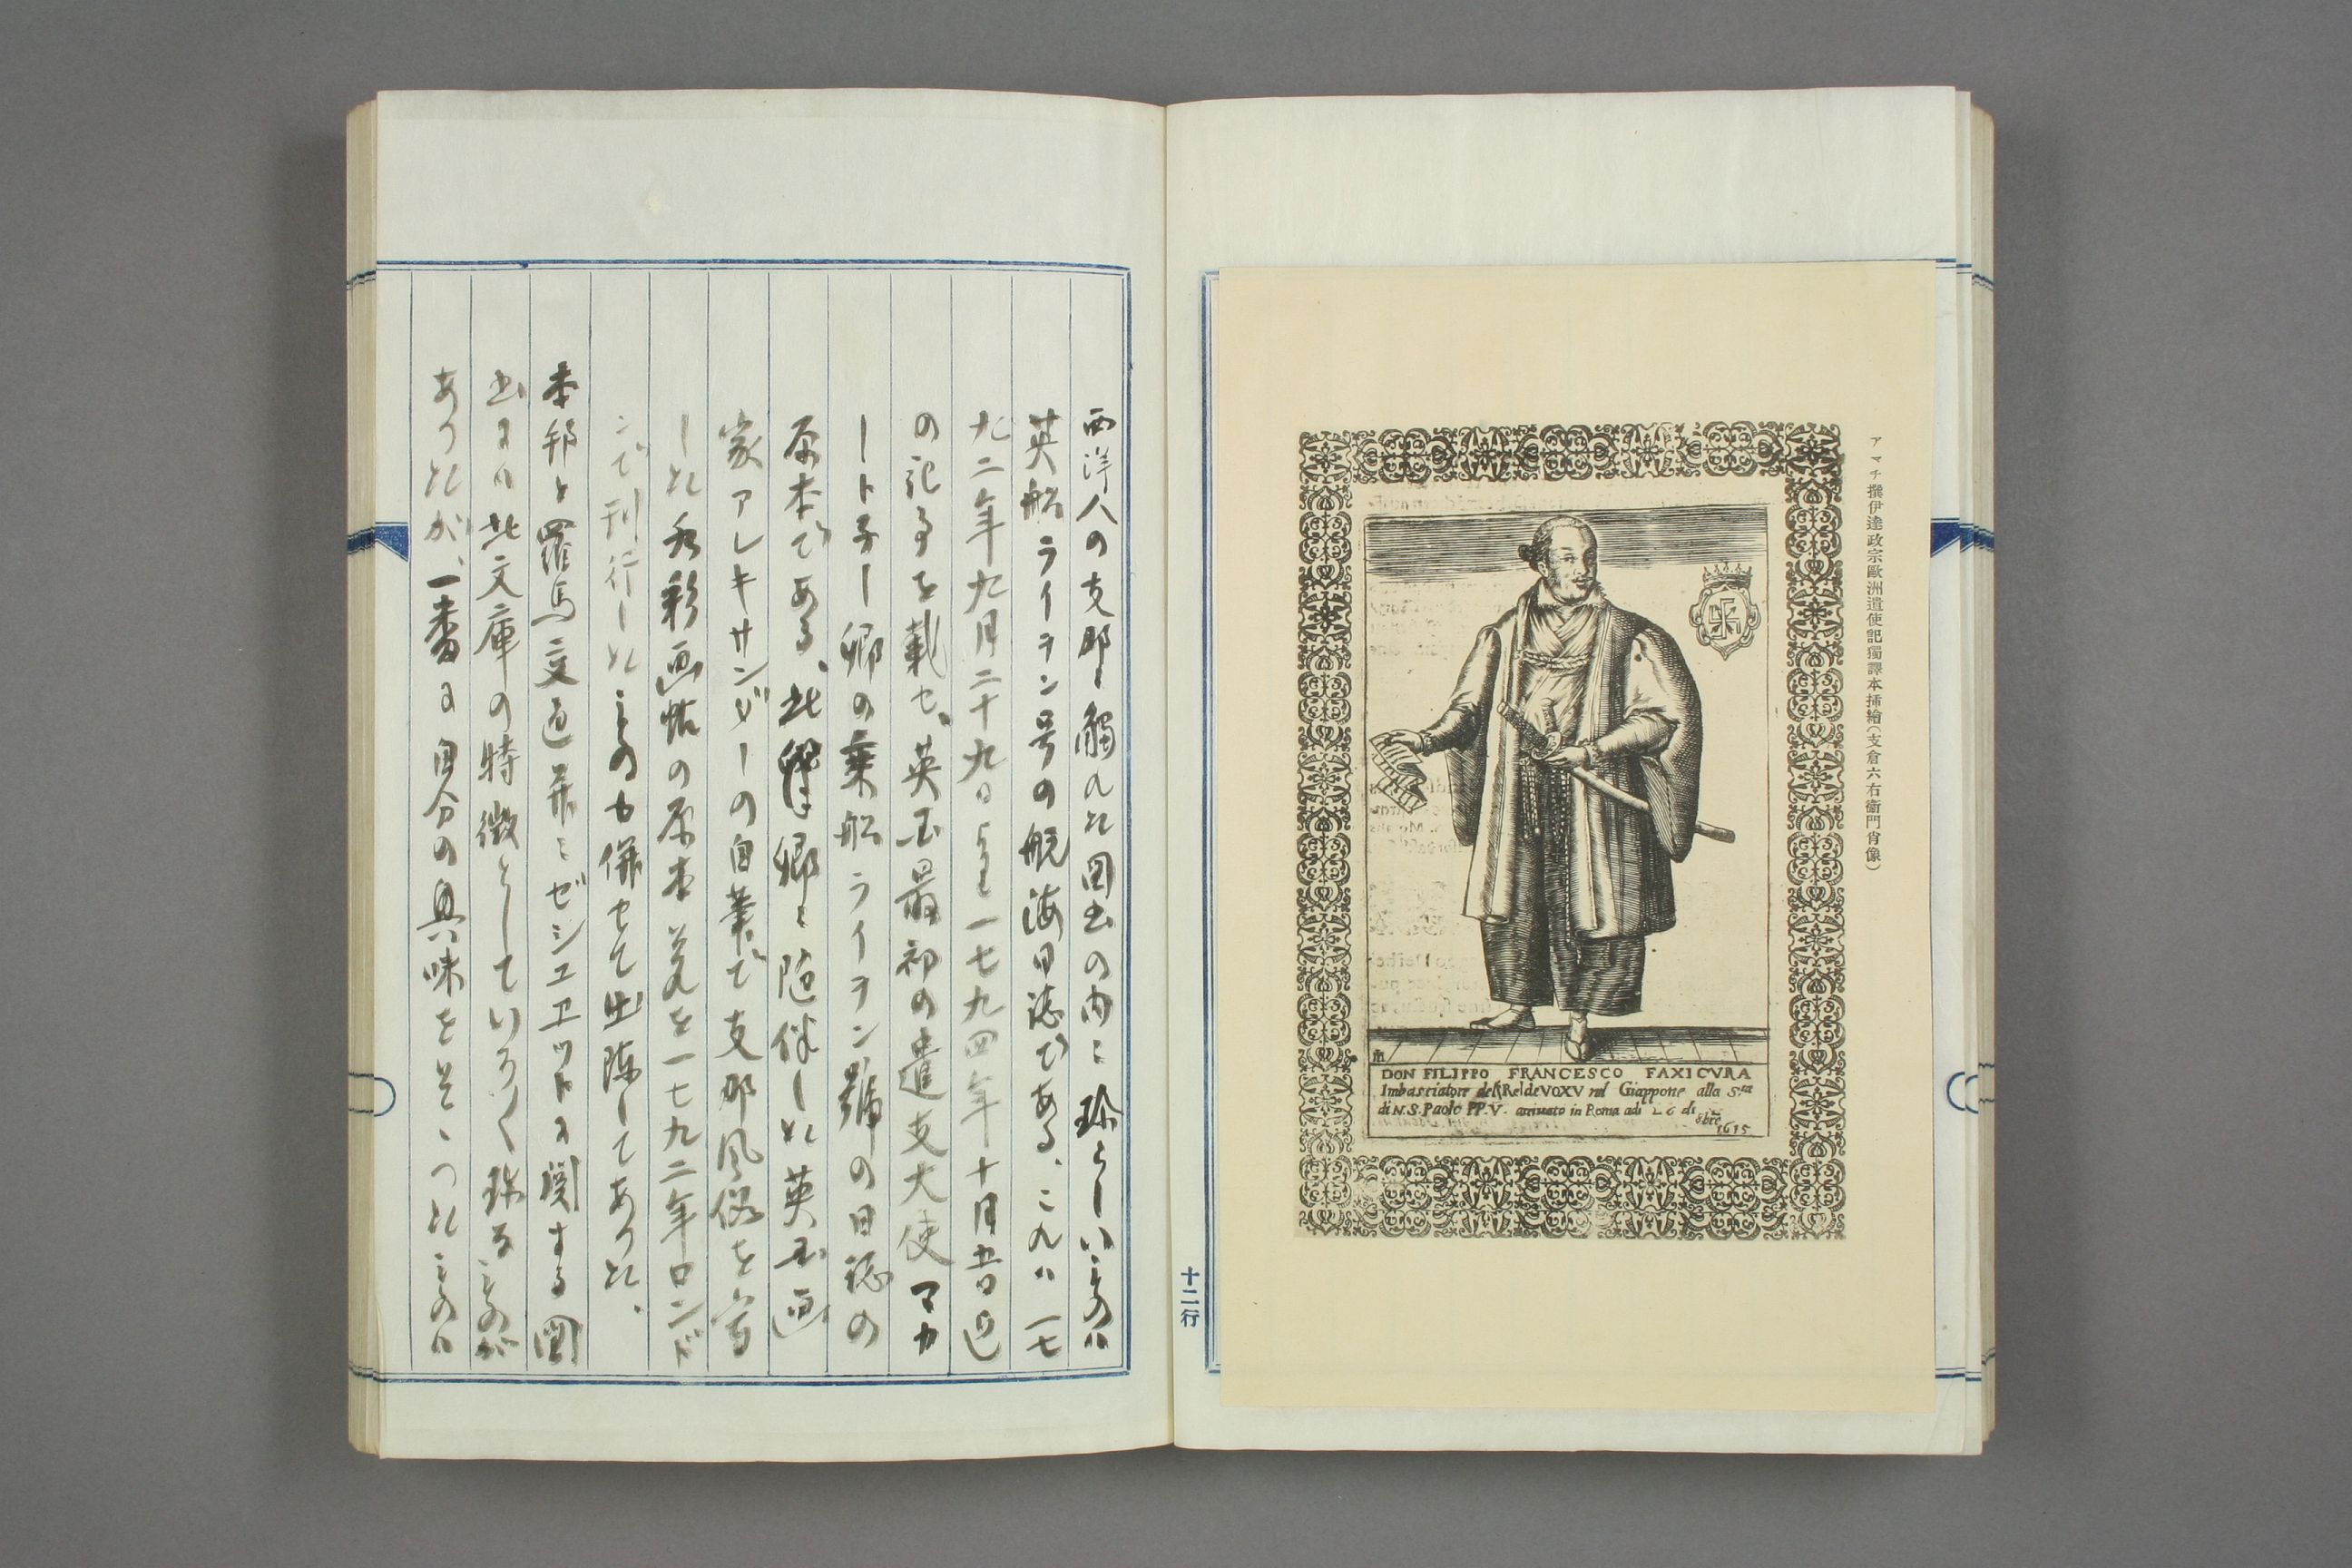 アマチ撰伊達政宗歐洲遣使記獨譯本挿繪(支倉六右衛門肖像)
DON FILIPPO FRANCESCO FAXICVRA
Imbasciatore del Re de VOXV nel Giappone alla S.ta
di N.S. Paolo PP.V. arriuato in Roma adi 26 di
8bre 1615
十二行
西洋人の支那ニ觸れた図書の内ニ珍らしいものハ
英船ライオン号の航海日誌である、これハ一七
九二年九月二十九日より一七九四年十月五日迄
の記事を載せ、英国最初の遣支大使マカ
ートネー卿の乗船ライオン號の日誌の
原本である、此卿ニ随伴した英国画
家アレキサンダーの自筆で支那風俗を写
した水彩画帖の原本を一七九二年ロンド
ンで刊行したものも併せて出陳してあつた、
本邦と羅馬交通並ニゼシユエツトに関する図
書には此文庫の特徴としていろ〱珍るものが
あつたが、一番に自分の興味をそゝつたものは